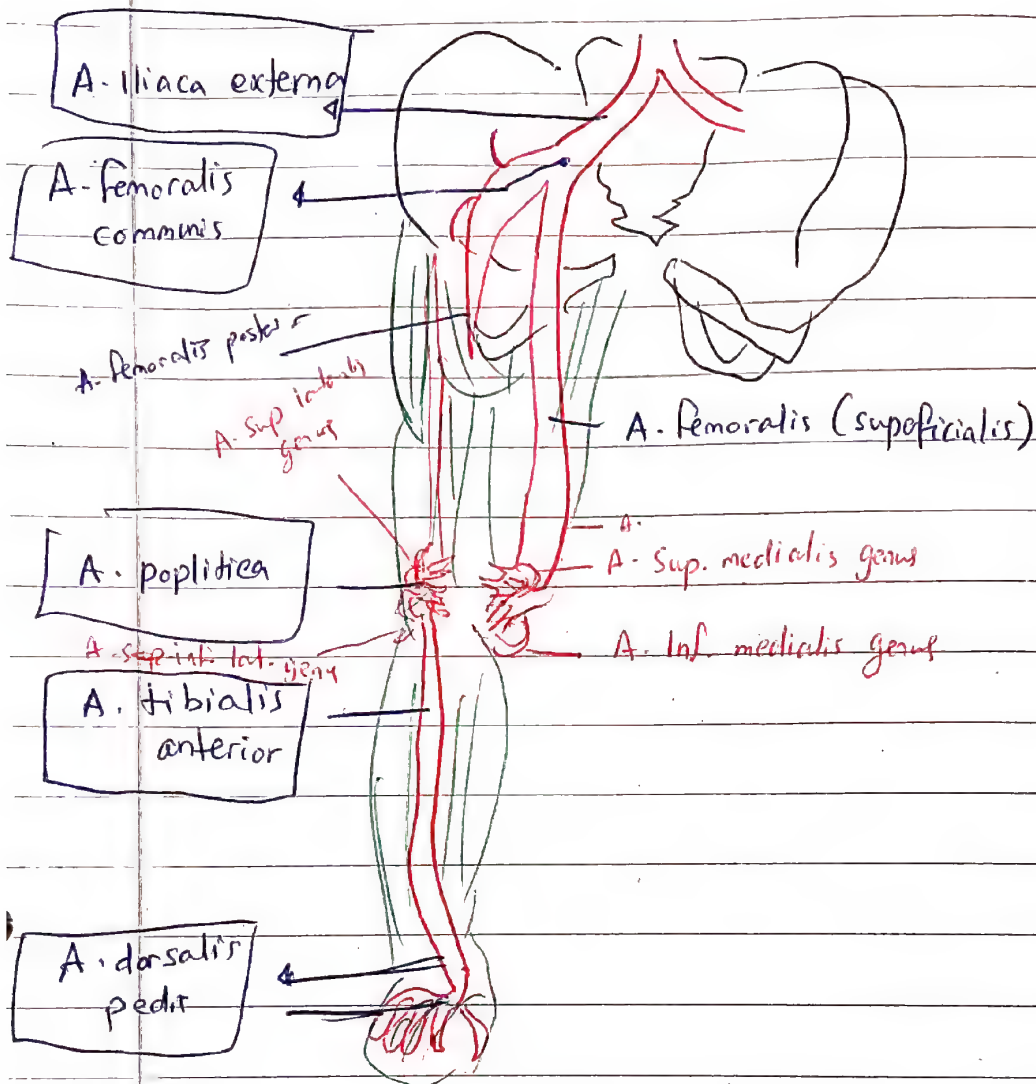 A. Iliaca externa
A. femoralis
communis
A. femoralis
A. Sup
genus
A. femoralis (supeficialis)
A.
A. poplitica
A. Sup. medialis genus
A. Inf. medialis genus
A. tibialis
anterior
A. dorsalis